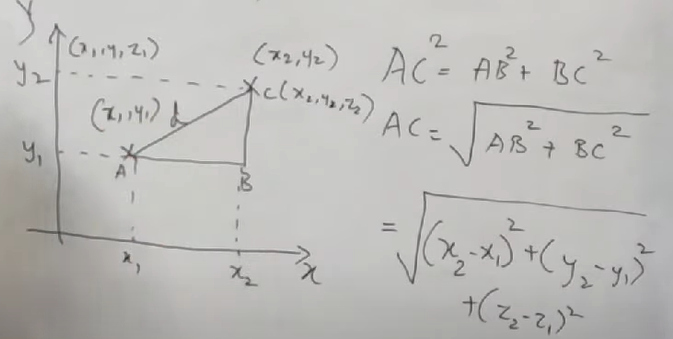 y
(x₁, y₁, z₁)
(x₂, y₂)
y₂
C(x₂, y₂, z₂)
(x₁, y₁) d
y₁
A
B
x₁
x₂
x
AC² = AB² + BC²
AC = √(AB² + BC²)
= √((x₂-x₁)² + (y₂-y₁)²
+(z₂-z₁)²